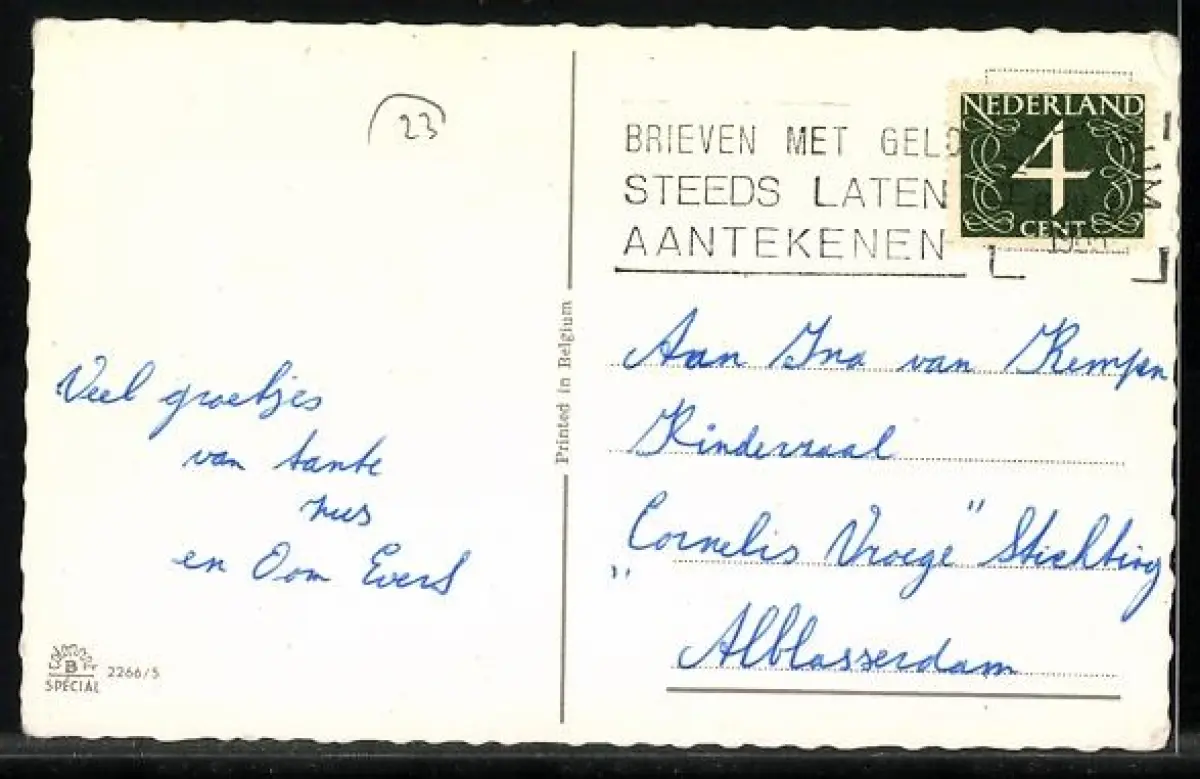 23
Veel groetjes
van tante
en Oom Evert
B
SPÉCIAL
2266/5
Printed in Belgium
BRIEVEN MET GELD
STEEDS LATEN
AANTEKENEN
NEDERLAND
4
CENT
Aan Ina van Kempen
Kinderzaal
„Cornelis Vroege" Stichting
Alblasserdam